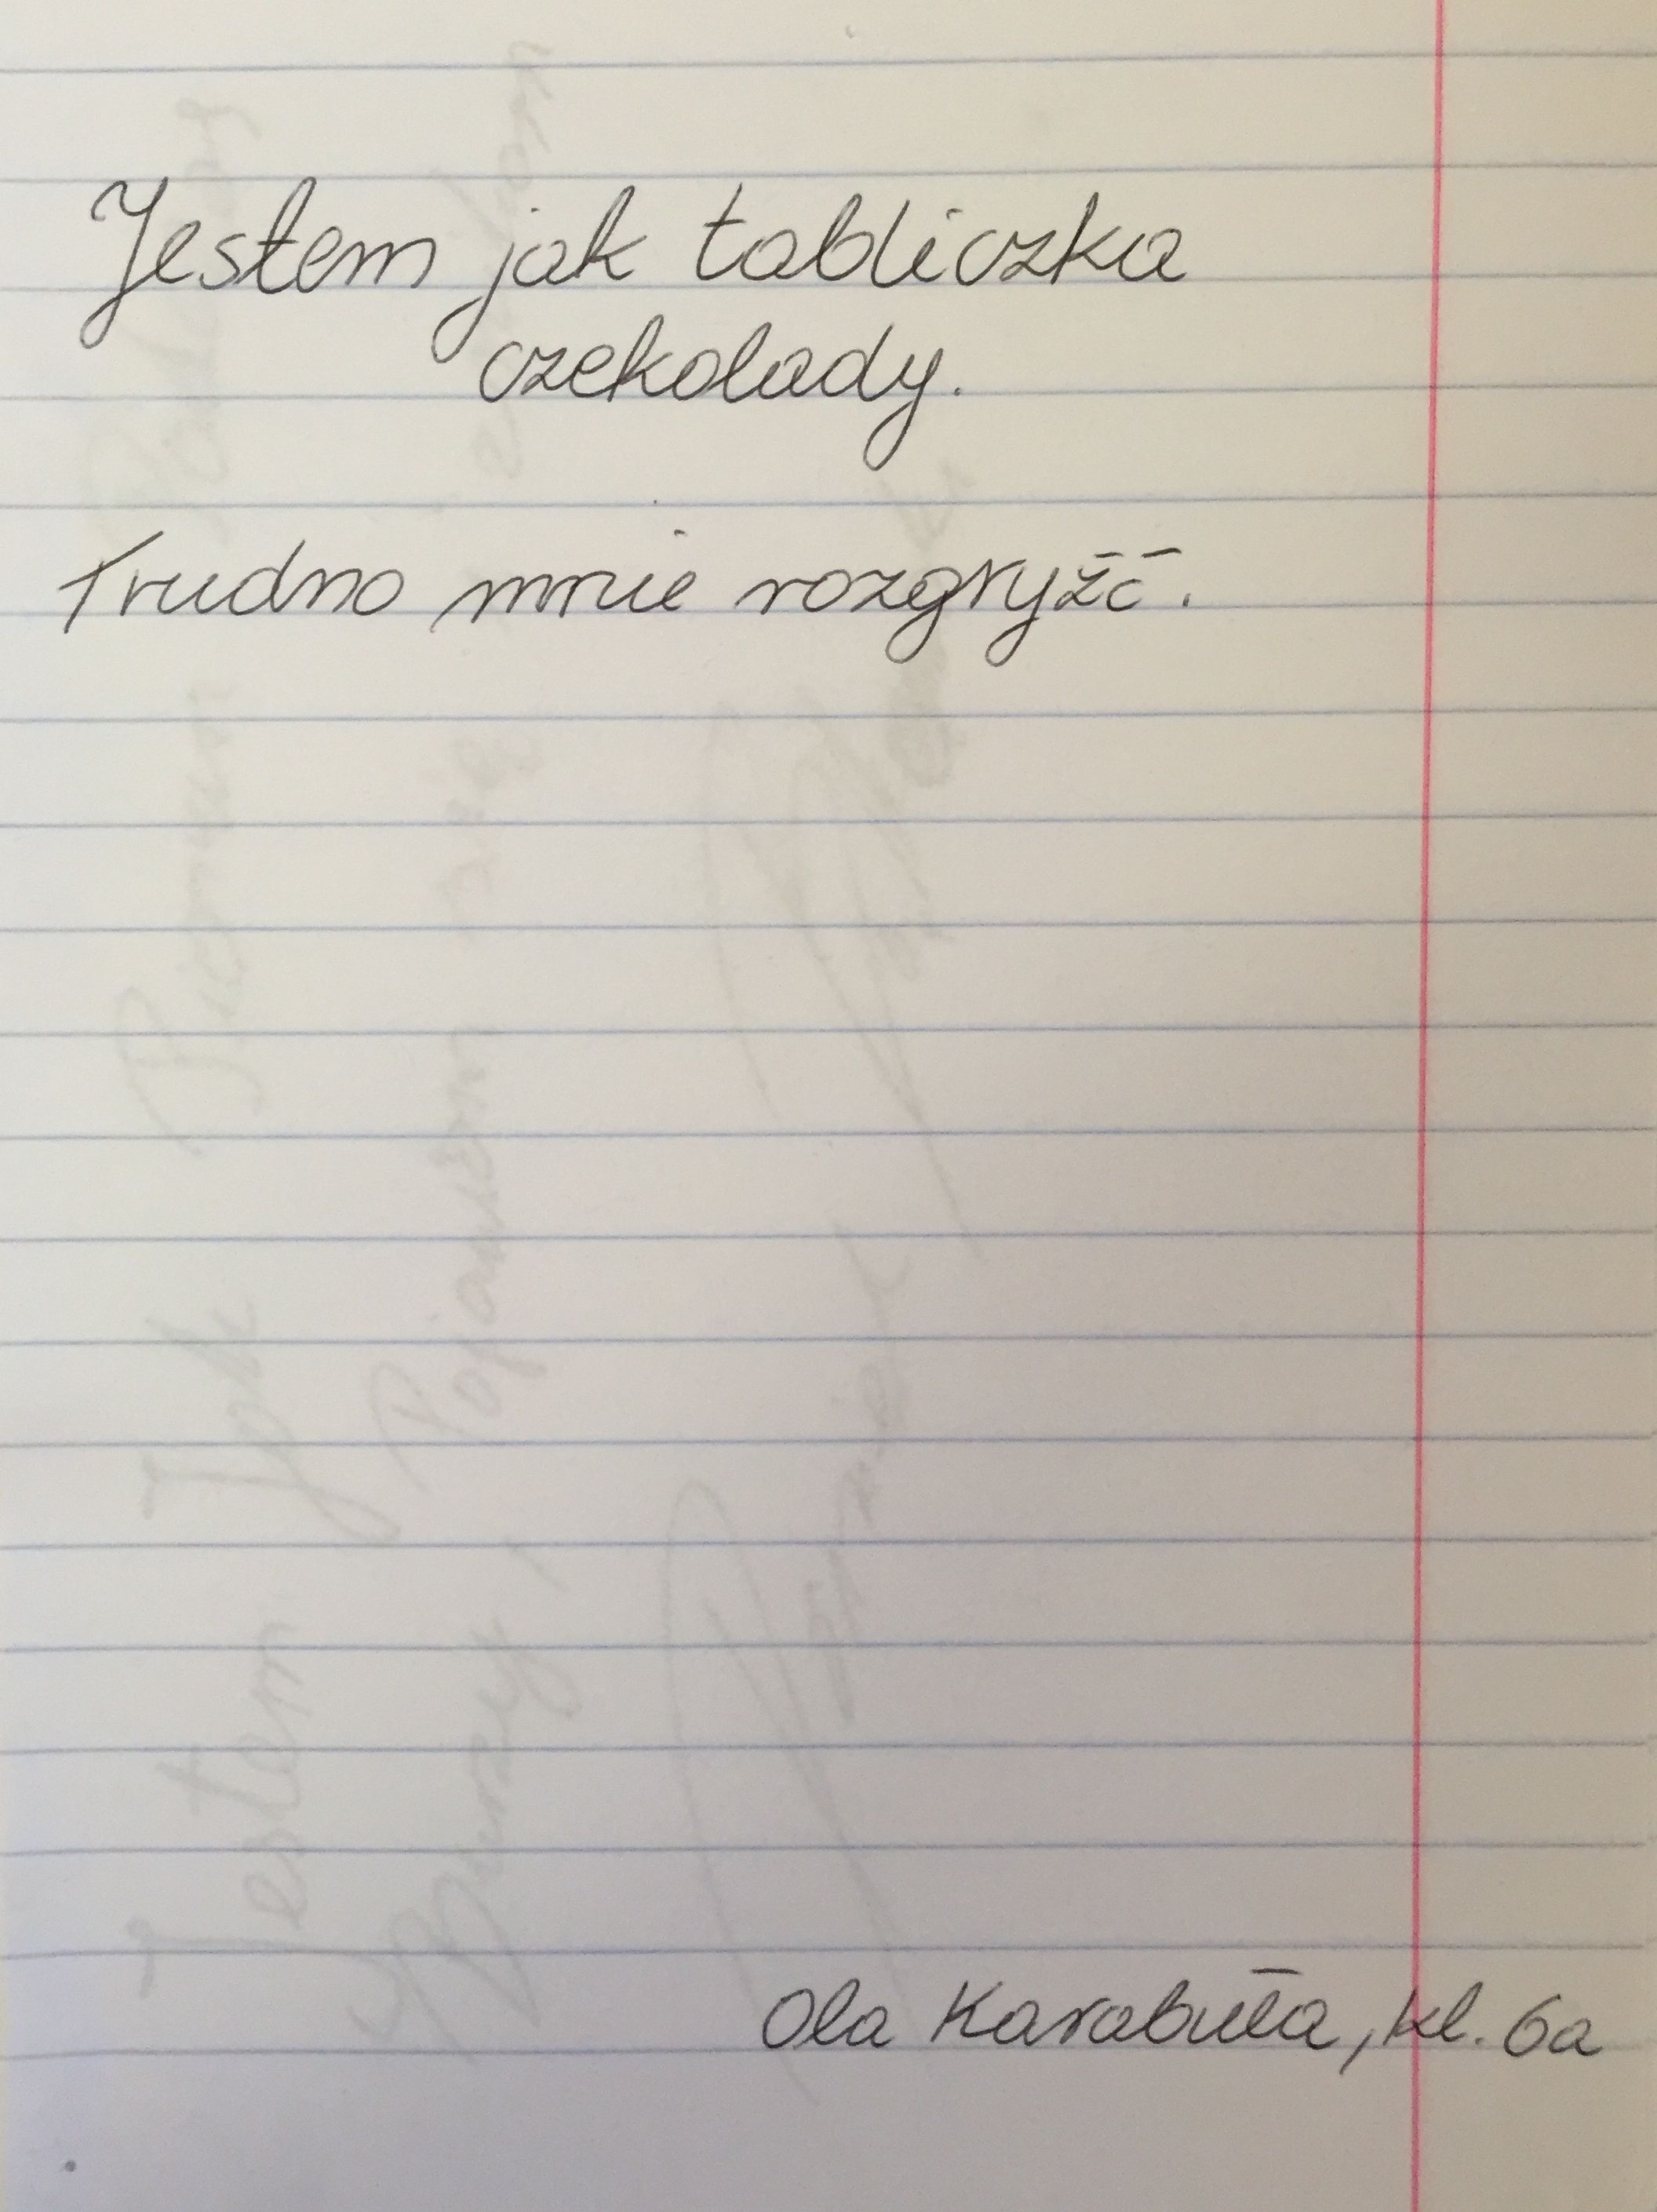 Jestem jak tabliczka
czekolady.
Trudno mnie rozgryźć.
Ola Karabuła, kl. 6a